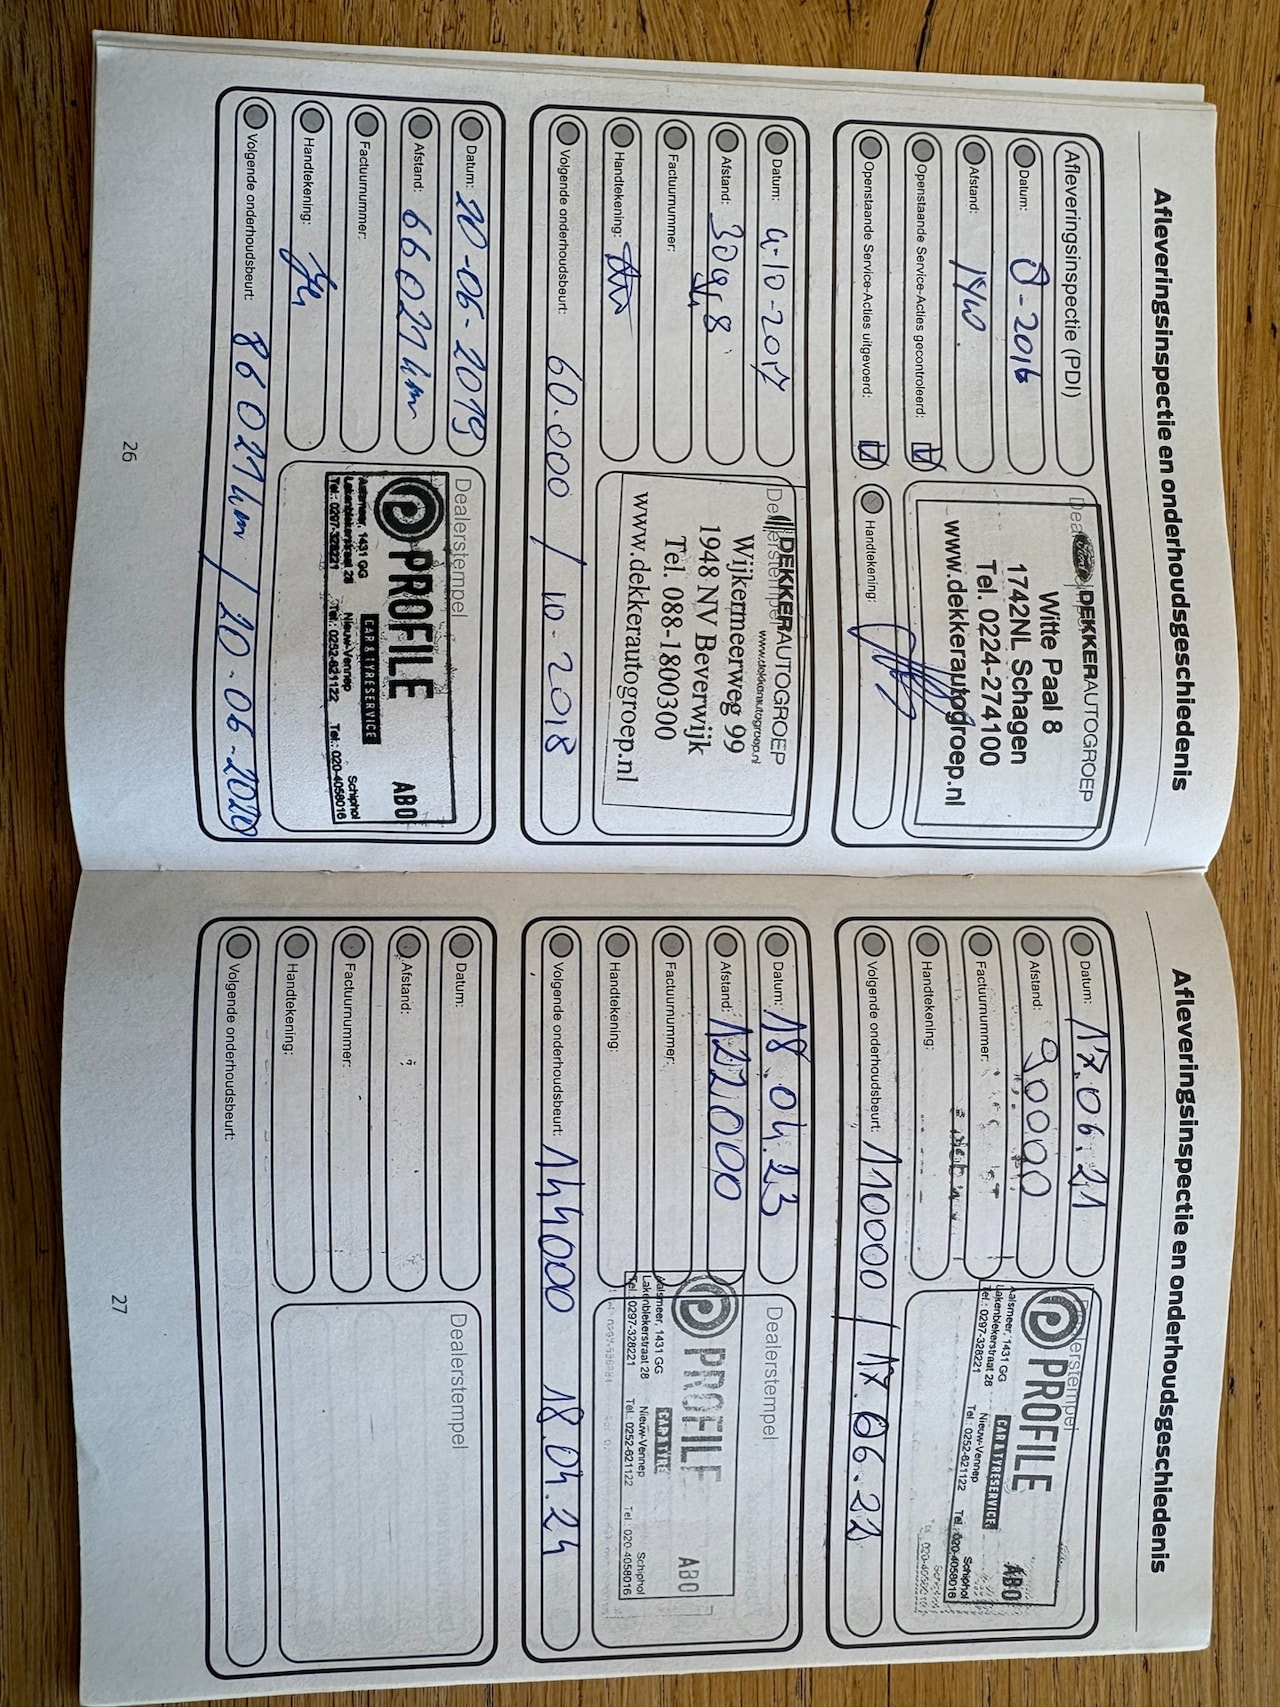 Afleveringsinspectie en onderhoudsgeschiedenis
Afleveringsinspectie (PDI)
Datum: 8-2016
Afstand:
Openstaande Service-Acties gecontroleerd:
Openstaande Service-Acties uitgevoerd:
DEKKERAUTOGROEP
Witte Paal 8
1742NL Schagen
Tel. 0224-274100
www.dekkerautogroep.nl
Handtekening:
Datum: 4-10-2017
Afstand:
Factuurnummer:
Handtekening:
Dealerstempel
DEKKERAUTOGROEP
www.dekkerautogroep.nl
Wijkermeerweg 99
1948 NV Beverwijk
Tel. 088-1800300
www.dekkerautogroep.nl
Volgende onderhoudsbeurt: 60.000 / 10-2018
Datum: 20-06-2019
Afstand: 66021km
Factuurnummer:
Handtekening:
Dealerstempel
PROFILE ABO
CAR & TYRESERVICE
Aalsmeer, 1431 GG Nieuw-Vennep Schiphol
Lakenblekerstraat 28
Tel.: 0297-328221 Tel.: 0252-621122 Tel.: 020-4058016
Volgende onderhoudsbeurt: 86021km / 20-06-2020
26
Afleveringsinspectie en onderhoudsgeschiedenis
Datum: 17.06.21
Afstand: 90000
Factuurnummer:
Handtekening:
Dealerstempel
PROFILE ABO
CAR & TYRESERVICE
Aalsmeer, 1431 GG Nieuw-Vennep Schiphol
Lakenblekerstraat 28
Tel.: 0297-328221 Tel.: 0252-621122 Tel.: 020-4058016
Volgende onderhoudsbeurt: 110000 / 17.06.22
Datum: 18.04.23
Afstand: 122000
Factuurnummer:
Handtekening:
Dealerstempel
PROFILE ABO
CAR & TYRE
Aalsmeer, 1431 GG Nieuw-Vennep Schiphol
Lakenblekerstraat 28
Tel.: 0297-328221 Tel.: 0252-621122 Tel.: 020-4058016
Volgende onderhoudsbeurt: 144000 18.04.24
Datum:
Afstand:
Factuurnummer:
Handtekening:
Dealerstempel
Volgende onderhoudsbeurt:
27